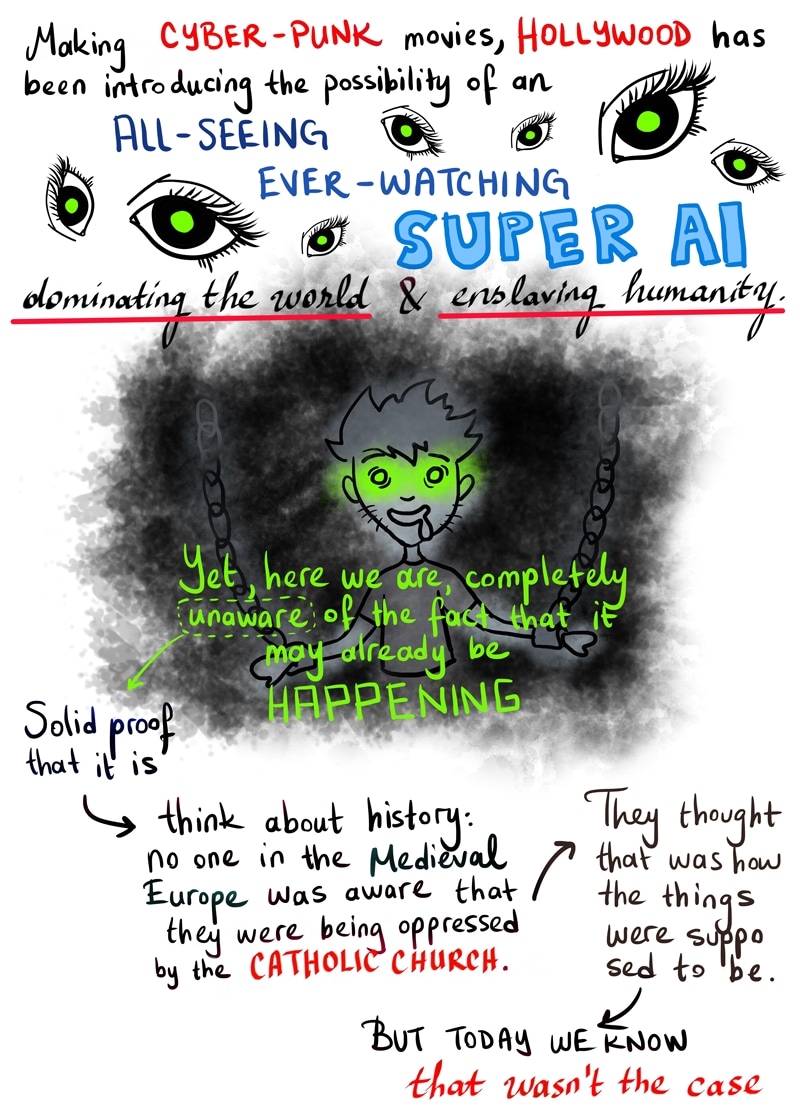 Making CYBER-PUNK movies, HOLLYWOOD has
been introducing the possibility of an
ALL-SEEING
EVER-WATCHING
SUPER AI
dominating the world & enslaving humanity.
Yet, here we are, completely
unaware of the fact that it
may already be
HAPPENING
Solid proof
that it is
think about history:
no one in the Medieval
Europe was aware that
they were being oppressed
by the CATHOLIC CHURCH.
They thought
that was how
the things
were suppo
sed to be.
BUT TODAY WE KNOW
that wasn't the case